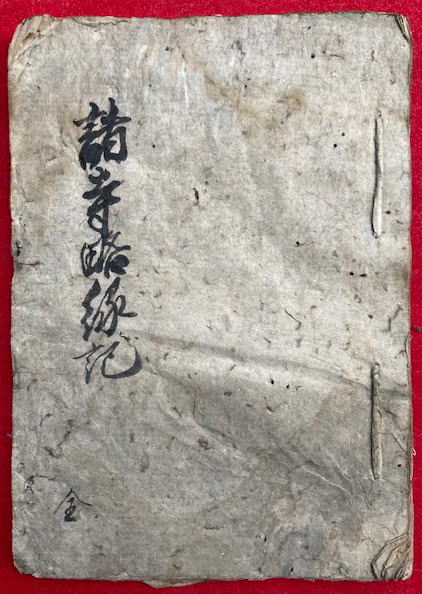 諸寺略縁記
全